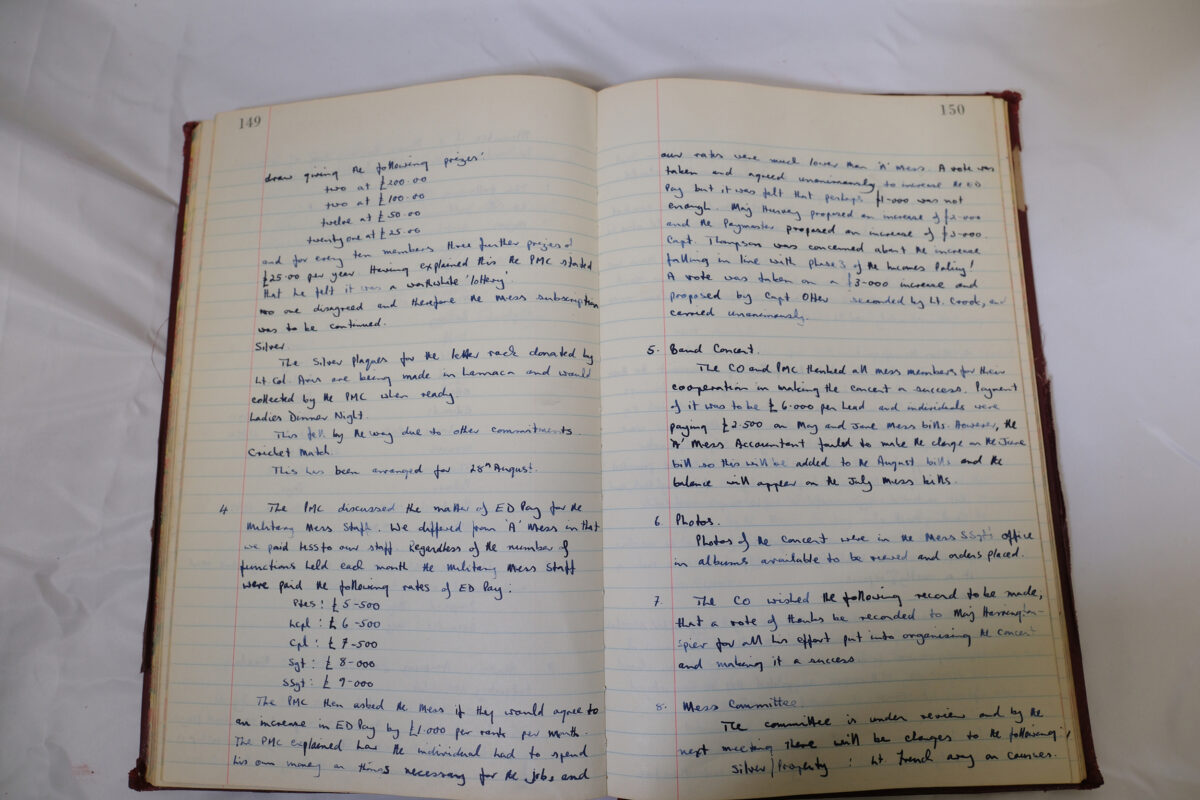 149
draw giving the following prizes:
two at £200.00
two at £100.00
twelve at £50.00
twenty one at £25.00
and for every ten members three further prizes of
£25.00 per year. Having explained this the PMC stated
that he felt it was a worthwhile 'lottery'
no one disagreed and therefore the mess subscription
was to be continued.
Silver.
The Silver plaques for the letter rack donated by
Lt. Col. are being made in Larnaca and would
collected by the PMC when ready.
Ladies Dinner Night.
This fell by the way due to other commitments.
Cricket Match.
This has been arranged for 28th August.
4 The PMC discussed the matter of ED Pay for the
Military Mess Staff. We differed from 'A' Mess in that
we paid less to our staff. Regardless of the number of
functions held each month the Military Mess Staff
were paid the following rates of ED Pay:
Ptes: £5-500
Lcpl: £6-500
Cpl: £7-500
Sgt: £8-000
SSgt: £9-000
The PMC then asked the Mess if they would agree to
an increase in ED Pay by £1.000 per rank per month.
The PMC explained how the individual had to spend
his own money on things necessary for the jobs, and
150
our rates were much lower than 'A' Mess. A vote was
taken and agreed unanimously, to increase the ED
Pay but it was felt that perhaps £1-000 was not
enough. Maj proposed an increase of £2-000
and the Paymaster proposed an increase of £3-000.
Capt. Thompson was concerned about the increase
falling in line with phase 3 of the Incomes Policy!
A vote was taken on a £3-000 increase and
proposed by Capt Otter seconded by Lt. Crook, and
carried unanimously.
5. Band Concert.
The CO and PMC thanked all mess members for their
cooperation in making the concert a success. Payment
of it was to be £6.000 per head and individuals were
paying £2.500 on May and June Mess bills. However, the
'A' Mess Accountant failed to make the charge on the June
bill so this will be added to the August bills and the
balance will appear on the July Mess bills.
6 Photos.
Photos of the concert were in the Mess SSgt's office
in albums available to be viewed and orders placed.
7. The CO wished the following record to be made,
that a vote of thanks be recorded to Maj Herrington-
Spier for all his effort put into organising the Concert
and making it a success.
8. Mess Committee.
The committee is under review and by the
next meeting there will be changes to the following:
Silver/Property: Lt French away on courses.